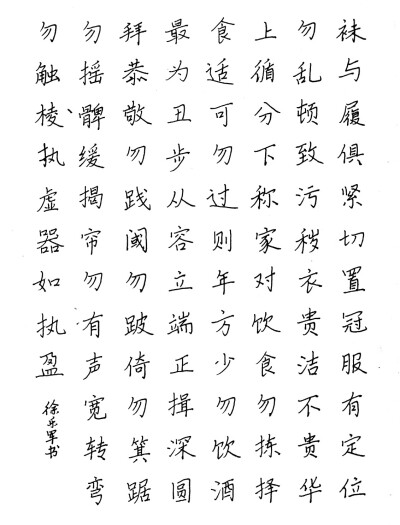 袜与履俱紧切置冠服有定位
勿乱顿致污秽衣贵洁不贵华
上循分下称家对饮食勿拣择
食适可勿过则年方少勿饮酒
最为丑步从容立端正揖深圆
拜恭敬勿践阈勿跛倚勿箕踞
勿摇髀缓揭帘勿有声宽转弯
勿触棱、执虚器如执盈
徐乐军书